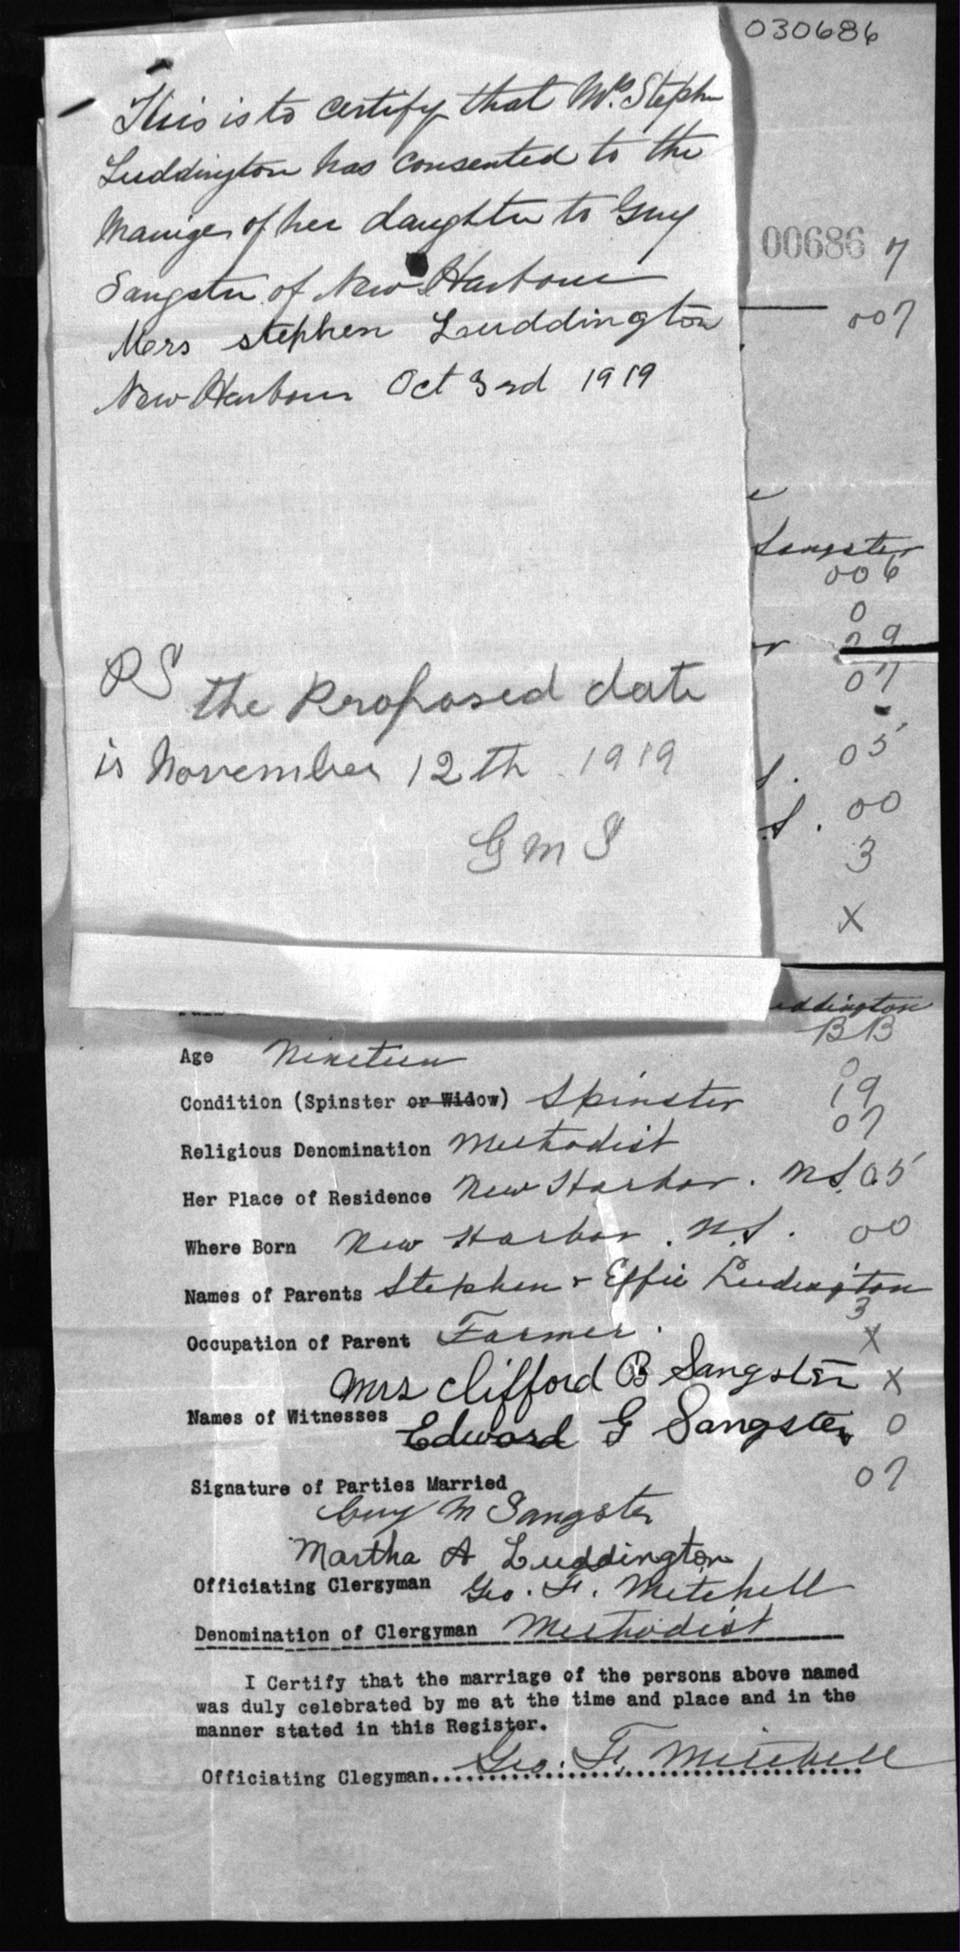 030686
This is to certify that Mrs. Stephn
Luddington has consented to the
Marrige of her daughter to Guy
Sangster of New Harbour
Mers stephen Luddington
New Harbour Oct 3rd 1919
00686 7
007
Sangster
006
0
29
07
05
S. 00
3
X
PS the Proposed date
is November 12th 1919
G M S
uddington
BB
0
Age Nineteen
Condition (Spinster or Widow) Spinster 19
07
Religious Denomination Methodist
Her Place of Residence New Harbor. N.S. 05
Where Born New Harbor. N.S. 00
Names of Parents Stephen & Effie Luddington
3
Occupation of Parent Farmer. X
Mrs Clifford B Sangster X
Names of Witnesses
Edward G Sangster 0
07
Signature of Parties Married
Guy M Sangster
Martha A Luddington
Officiating Clergyman Geo. F. Mitchell
Denomination of Clergyman Methodist
I Certify that the marriage of the persons above named
was duly celebrated by me at the time and place and in the
manner stated in this Register.
Officiating Clegyman.... Geo. F. Mitchell